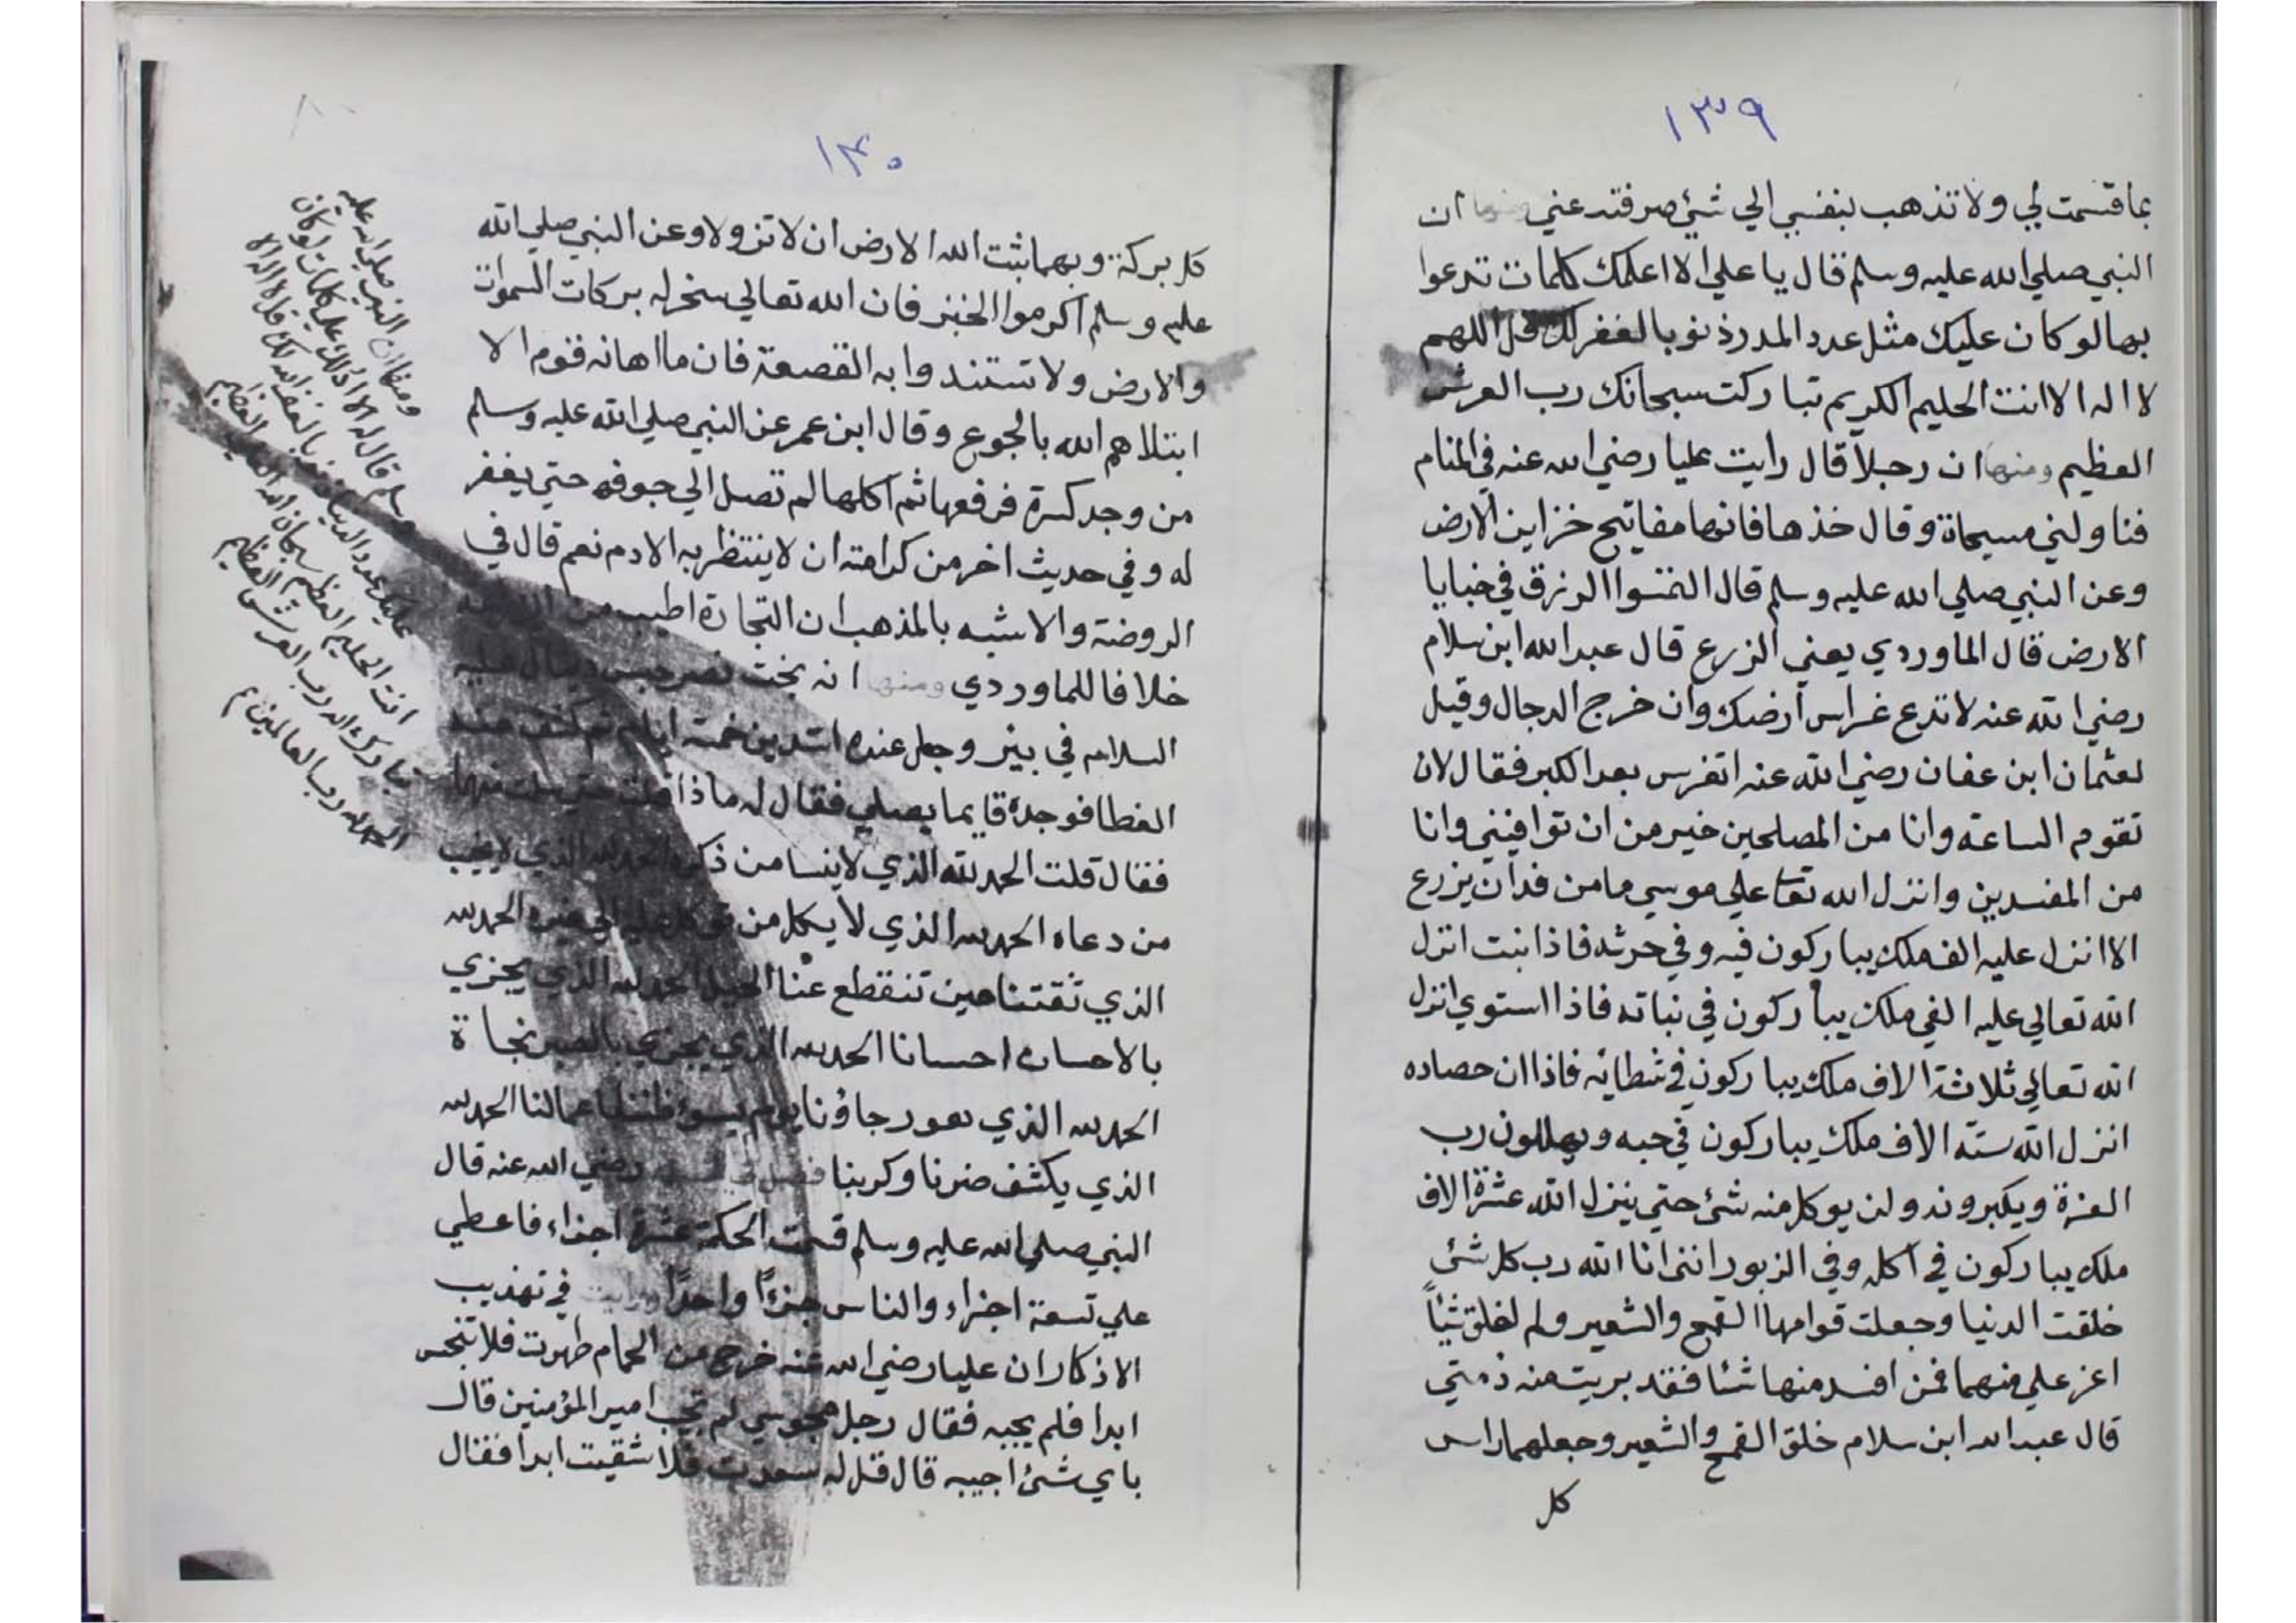 ١٣٩
بما قسمت لي ولا تذهب بنفسي الي شئ صرفته عني ومنها ان
النبي صلي الله عليه وسلم قال يا علي الا اعلمك كلمات تدعوا
بها لو كان عليك مثل عدد المدر ذنوبا لغفر لك قل اللهم
لا اله الا انت الحليم الكريم تباركت سبحانك رب العرش
العظيم ومنها ان رجلا قال رايت عليا رضي الله عنه في المنام
فناولني مسحاة وقال خذها فانها مفاتيح خزاين الارض
وعن النبي صلي الله عليه وسلم قال التمسوا الرزق في خبايا
الارض قال الماوردي يعني الزرع قال عبد الله ابن سلام
رضي الله عنه لا تدع غراس ارضك وان خرج الدجال وقيل
لعثمان ابن عفان رضي الله عنه اتغرس بعد الكبر فقال لان
تقوم الساعة وانا من المصلحين خير من ان توافيني وانا
من المفسدين وانزل الله تعا علي موسي ما من فدان يزرع
الا انزل عليه الف ملك يباركون فيه وفي حرثه فاذا نبت انزل
الله تعالي عليه الفي ملك يباركون في نباته فاذا استوي انزل
الله تعالي ثلاثة الاف ملك يباركون في شطائه فاذا ان حصاده
انزل الله ستة الاف ملك يباركون في حبه ويهللون رب
العزة ويكبرونه ولن يوكل منه شئ حتي ينزل الله عشرة الاف
ملك يباركون في اكله وفي الزبور انني انا الله رب كل شئ
خلقت الدنيا وجعلت قوامها القمح والشعير ولم اخلق شيأ
اعز علي منهما فمن افسد منها شئا فقد بريت منه ذمتي
قال عبد الله ابن سلام خلق القمح والشعير وجعلهما راس
كل
١٤٠
كل بركة وبهما ثبت الله الارض ان لا تزولا وعن النبي صلي الله
عليه وسلم اكرموا الخبز فان الله تعالي سخر له بركات السموات
والارض ولا تستندوا به القصعة فان ما اهانه قوم الا
ابتلاهم الله بالجوع وقال ابن عمر عن النبي صلي الله عليه وسلم
من وجد كسرة فرفعها ثم اكلها لم تصل الي جوفه حتي يغفر
له وفي حديث اخر من كرامته ان لا ينتظر به الادم نعم قال في
الروضة والاشبه بالمذهب ان التجارة اطيب من
خلافا للماوردي ومنها انه بخت نصر حبس دانيال عليه
السلام في بير وجعل عنده اسدين خمسة ايام ثم كشف عنه
الغطا فوجده قايما يصلي فقال له ماذا قلت حتي
فقال قلت الحمد لله الذي لا ينسا من ذكره الحمد لله الذي لا يخيب
من دعاه الحمد لله الذي لا يكل من توكل عليه الي غيره الحمد لله
الذي ثقتنا حين تنقطع عنا الحيل الحمد لله الذي يجزي
بالاحسان احسانا الحمد لله الذي يجزي بالصبر نجاة
الحمد لله الذي هو رجاؤنا يوم يسوء ظننا باعمالنا الحمد لله
الذي يكشف ضرنا وكربنا رضي الله عنه قال
النبي صلي الله عليه وسلم قسمت الحكمة عشرة اجزاء فاعطي
علي تسعة اجزاء والناس جزءًا واحدًا ورايت في تهذيب
الاذكار ان عليا رضي الله عنه خرج من الحمام طهرت فلا تنجس
ابدا فلم يجبه فقال رجل مجوسي لم تجب امير المؤمنين قال
باي شئ اجيبه قال قل له سعدت فلا شقيت ابدا فقال
ومنها ان النبي صلي الله عليه
وسلم قال له الا ادلك علي كلمات لو كان
عليك عدد ذنوب يا لغفر الله لك قل لا اله الا
انت الحليم العظيم سبحان الله العظيم
تبارك الله رب العرش العظيم
الحمد لله رب العالمين